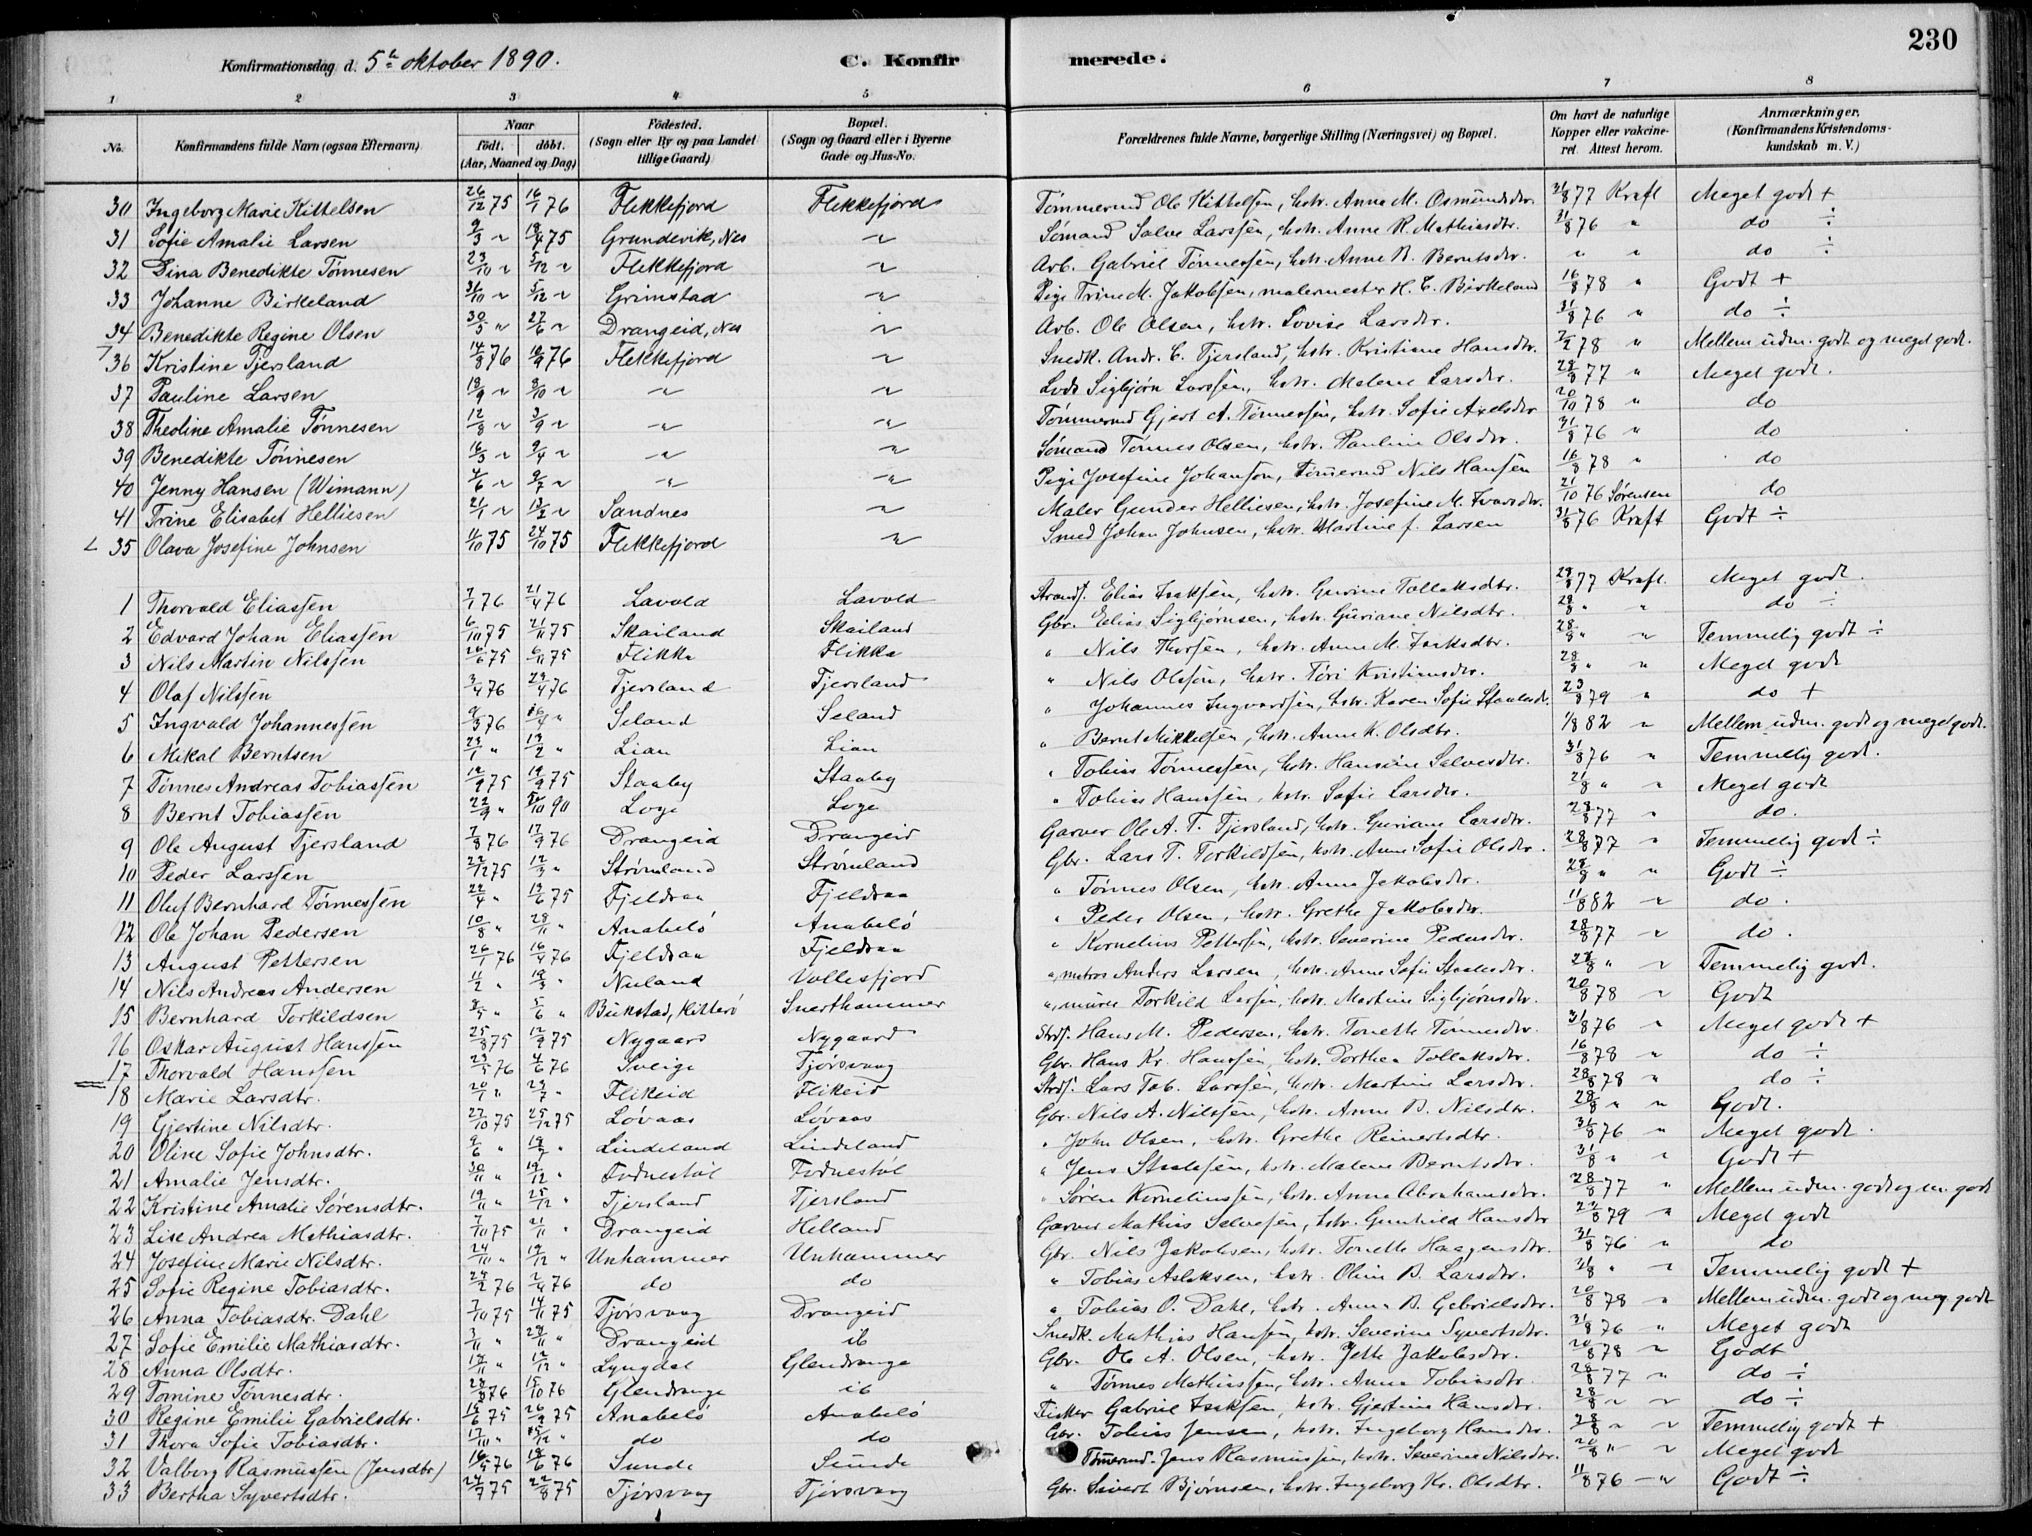 230
Konfirmationsdag d. 5te oktober 1890. C. Konfir merede.
1 2 3 4 5 6 7 8
No. Konfirmandens fulde Navn (ogsaa Efternavn) Naar födt. döbt. (Aar, Maaned og Dag) Födested. (Sogn eller By og paa Landet tillige Gaard) Bopæl. (Sogn og Gaard eller i Byerne Gade og Hus-No. Forældrenes fulde Navne, borgerlige Stilling (Næringsvei) og Bopæl. Om havt de naturlige Kopper eller vakcineret. Attest herom. Anmærkninger. (Konfirmandens Kristendomskundskab m. V.)
30 Ingeborg Marie Kittelsen 26/12 75 16/1 76 Flekkefjord Flekkefjord Tømmermd Ole Kittelsen, hstr. Anne M. Osmundsdtr. 31/8 77 Kraft Meget godt +
31 Sofie Amalie Larsen 9/3 " 18/4 75 Grundevik, Nes " Sømand Salve Larssen, hstr. Anne R. Mathiasdtr. 31/8 76 " do ÷
32 Dina Benedikte Tønnesen 23/10 " 5/12 " Flekkefjord " Arb. Gabriel Tønnessen, hstr. Anne B. Berntsdtr. " " do ÷
33 Johanne Birkeland 31/10 " 5/12 " Grimstad " Pige Trine M. Jakobsen, malermester H. C. Birkeland 16/8 78 " Godt +
34 Benedikte Regine Olsen 30/5 " 27/6 " Drangeid, Nes " Arb. Ole Olsen, hstr. Lovise Larsdtr. 31/8 76 " do ÷
36 Kristine Tjersland 14/8 76 10/9 76 Flekkefjord " Snedk. Andr. C. Tjersland, hstr. Kristiane Hansdtr. 7/2 78 " Mellem udm. godt og meget godt.
37 Pauline Larsen 18/9 " 8/10 " " " Lods Sigbjørn Larssen, hstr. Malene Larsdtr. 28/8 77 " Meget godt.
38 Theoline Amalie Tønnesen 12/8 " 3/9 " " " Tømmermd Gjert A. Tønnessen, hstr. Sofie Axelsdtr 20/10 78 " do
39 Benedikte Tønnesen 16/3 " 9/4 " " " Sømand Tønnes Olsen, hstr. Pauline Olsdtr. 31/8 76 " do
40 Jenny Hansen (Wimann) 4/6 " 9/7 " " " Pige Josefine Johanson, Tømermd Nils Hansen 16/8 78 " do
41 Trine Elisabet Helliesen 21/1 " 13/2 " Sandnes " Maler Gunder Helliesen, hstr. Josefine M. Ivarsdtr. 21/10 76 Sørensen do
35 Olava Josefine Johnsen 11/10 75 24/10 75 Flekkefjord " Smed Johan Johnsen, hstr. Martine f. Larsen 31/8 76 Kraft Godt ÷
1 Thorvald Eliassen 7/1 76 21/4 76 Lavold Lavold Strandf. Elias Isaksen, hstr. Gurine Tollaksdtr. 28/8 77 Kraft. Meget godt.
2 Edvard Johan Eliassen 6/10 75 21/11 75 Skailand Skailand Gbr. Elias Sigbjørnsen, hstr. Guriane Nilsdtr. 28/8 " " do ÷
3 Nils Martin Nilssen 26/6 75 6/11 75 Flikka Flikka " Nils Thorsen, hstr. Anne M. Isaksdtr. 28/8 " " Temmelig godt ÷
4 Olaf Nilssen 3/4 76 23/4 76 Tjersland Tjersland " Nils Olssen, hstr. Tori Kristiansdtr. 28/8 " " Meget godt
5 Ingvald Johannessen 9/3 76 16/4 " Seland Seland " Johannes Ingvardsen, hstr. Karen Sofie Staalesdt. 23/8 79 " do +
6 Mikal Berntsen 23/1 " 13/2 " Lian Lian " Bernt Mikkelsen, hstr. Anne K. Olsdtr. 1/8 82 " Mellem udm. godt og meget godt.
7 Tønnes Andreas Tobiassen 12/9 75 19/9 75 Staaby Staaby " Tobias Tønnessen, hstr. Hansine Salvesdtr. 31/8 76 " Temmelig godt.
8 Bernt Tobiassen 22/9 " 5/10 90 Loge Loge " Tobias Hanssen, hstr. Sofie Larsdtr. 21/8 " " Meget godt
9 Ole August Tjersland 7/8 76 17/9 76 Drangeid Drangeid Garver Ole A. T. Tjersland, hstr. Guriane Larsdtr. 28/8 77 " do.
10 Peder Larssen 22/12 75 12/3 " Strømland Strømland Gbr. Lars T. Torkildsen, hstr. Anne Sofie Olsdtr. 28/8 77 " Temmelig godt ÷
11 Oluf Bernhard Tønnessen 22/4 " 13/6 75 Fjeldsaa Fjeldsaa " Tønnes Olsen, hstr. Anna Jakobsdtr. 28/8 " " Godt ÷
12 Ole Johan Pedersen 10/8 " 28/11 " Anabelø Anabelø " Peder Olsen, hstr. Grethe Jakobsdtr. 11/8 82 " do.
13 August Pettersen 26/1 76 16/4 76 Fjeldsaa Fjeldsaa " Kornelius Pettersen, hstr. Severine Pedersdtr. 28/8 77 " do.
14 Nils Andreas Andersen 11/2 " 19/3 " Nuland Vollesfjord " matros Anders Larsen, hstr. Anne Sofie Staalesdtr. 28/8 " " Temmelig godt.
15 Bernhard Torkildsen 8/5 " 5/6 " Bukstad, Hitterø Snerthammer " murer Torkild Larsen, hstr. Martine Sigbjørnsdtr. 20/8 78 " Godt
16 Oskar August Hanssen 25/8 75 12/9 75 Nygaard Nygaard Strdf. Hans M. Pedersen, hstr. Tonette Tønnesdtr. 31/8 76 " Meget godt +
17 Thorvald Hanssen 23/5 76 4/6 76 Sveige Tjørsvaag Gbr. Hans Kr. Hanssen, hstr. Dorthea Tollaksdtr. 16/8 78 " do ÷
18 Marie Larsdtr. 20/1 " 23/7 " Flikeid Flikeid Strdf. Lars Tob. Larssen, hstr. Martine Larsdtr. 28/8 78 " do ÷
19 Gjertine Nilsdtr. 27/10 75 25/12 75 Løvaas Løvaas Gbr. Nils A. Nilssen, hstr. Anne B. Nilsdtr. 28/8 " " Godt.
20 Oline Sofie Johnsdtr. 9/6 " 18/7 " Lindeland Lindeland " John Olsen, hstr. Grethe Reinertsdtr. 31/8 76 " Meget godt.
21 Amalie Jensdtr. 30/11 " 19/12 " Fodnestøl Fodnestøl " Jens Staalesen, hstr. Malene Berntsdtr. 31/8 " " Godt +
22 Kristine Amalie Sørensdtr. 19/11 " 25/12 " Tjersland Tjersland " Søren Korneliussen, hstr. Anne Abrahamsdtr. 28/8 77 " Mellem udm. godt og m. godt
23 Lise Andrea Mathiasdtr. 7/10 75 21/11 " Drangeid Helland Garver Mathias Salvesen, hstr. Gunhild Hansdtr 22/8 79 " Meget godt
24 Josefine Marie Nilsdtr. 24/10 " 19/12 " Unhammer Unhammer Gbr. Nils Jakobsen, hstr. Tonette Haagensdtr. 31/8 76 " do
25 Sofie Regine Tobiasdtr. 24/2 76 2/4 76 do do " Tobias Aslaksen, hstr. Oline B. Larsdtr. 31/8 " " Temmelig godt +
26 Anna Tobiasdtr. Dahl 7/10 75 14/11 75 Tjørsvaag Drangeid " Tobias O. Dahl, hstr. Anna B. Gabrielsdtr. 20/8 78 " Mellem udm. godt og meg. godt
27 Sofie Emilie Mathiasdtr. 3/11 " 28/11 " Drangeid ib Snedk. Mathias Hansen, hstr. Severine Syvertsdtr. 31/8 76 " Meget godt
28 Anna Olsdtr. 17/11 " 12/12 " Lyngdal Glendrange Gbr. Ole A. Olsen, hstr. Jette Jakobsdtr. 20/8 78 " Godt
29 Tomine Tønnesdtr. 28/8 76 15/10 76 Glendrange ib " Tønnes Mathiassen, hstr. Anna Tobiasdtr. 28/8 77 " do ÷
30 Regine Emilie Gabrielsdtr. 15/6 75 26/9 75 Anabelø Anabelø Fisker Gabriel Isaksen, hstr. Gjertine Hansdtr. 28/8 " " do ÷
31 Thora Sofie Tobiasdtr. 17/10 " 25/12 " do do Gbr. Tobias Jensen, hstr. Ingeborg Hansdtr. 28/8 " " Temmelig godt +
32 Valborg Rasmussen (Jensdtr.) 16/5 76 18/6 76 Sunde Sunde Tømermd. Jens Rasmussen, hstr. Severine Nilsdtr. 20/8 " " Meget godt
33 Bertha Syvertsdtr. 24/7 75 22/8 75 Tjørsvaag Tjørsvaag Gbr. Sivert Bjørnsen, hstr. Ingeborg Kr. Olsdtr. 11/8 76 " Godt ÷